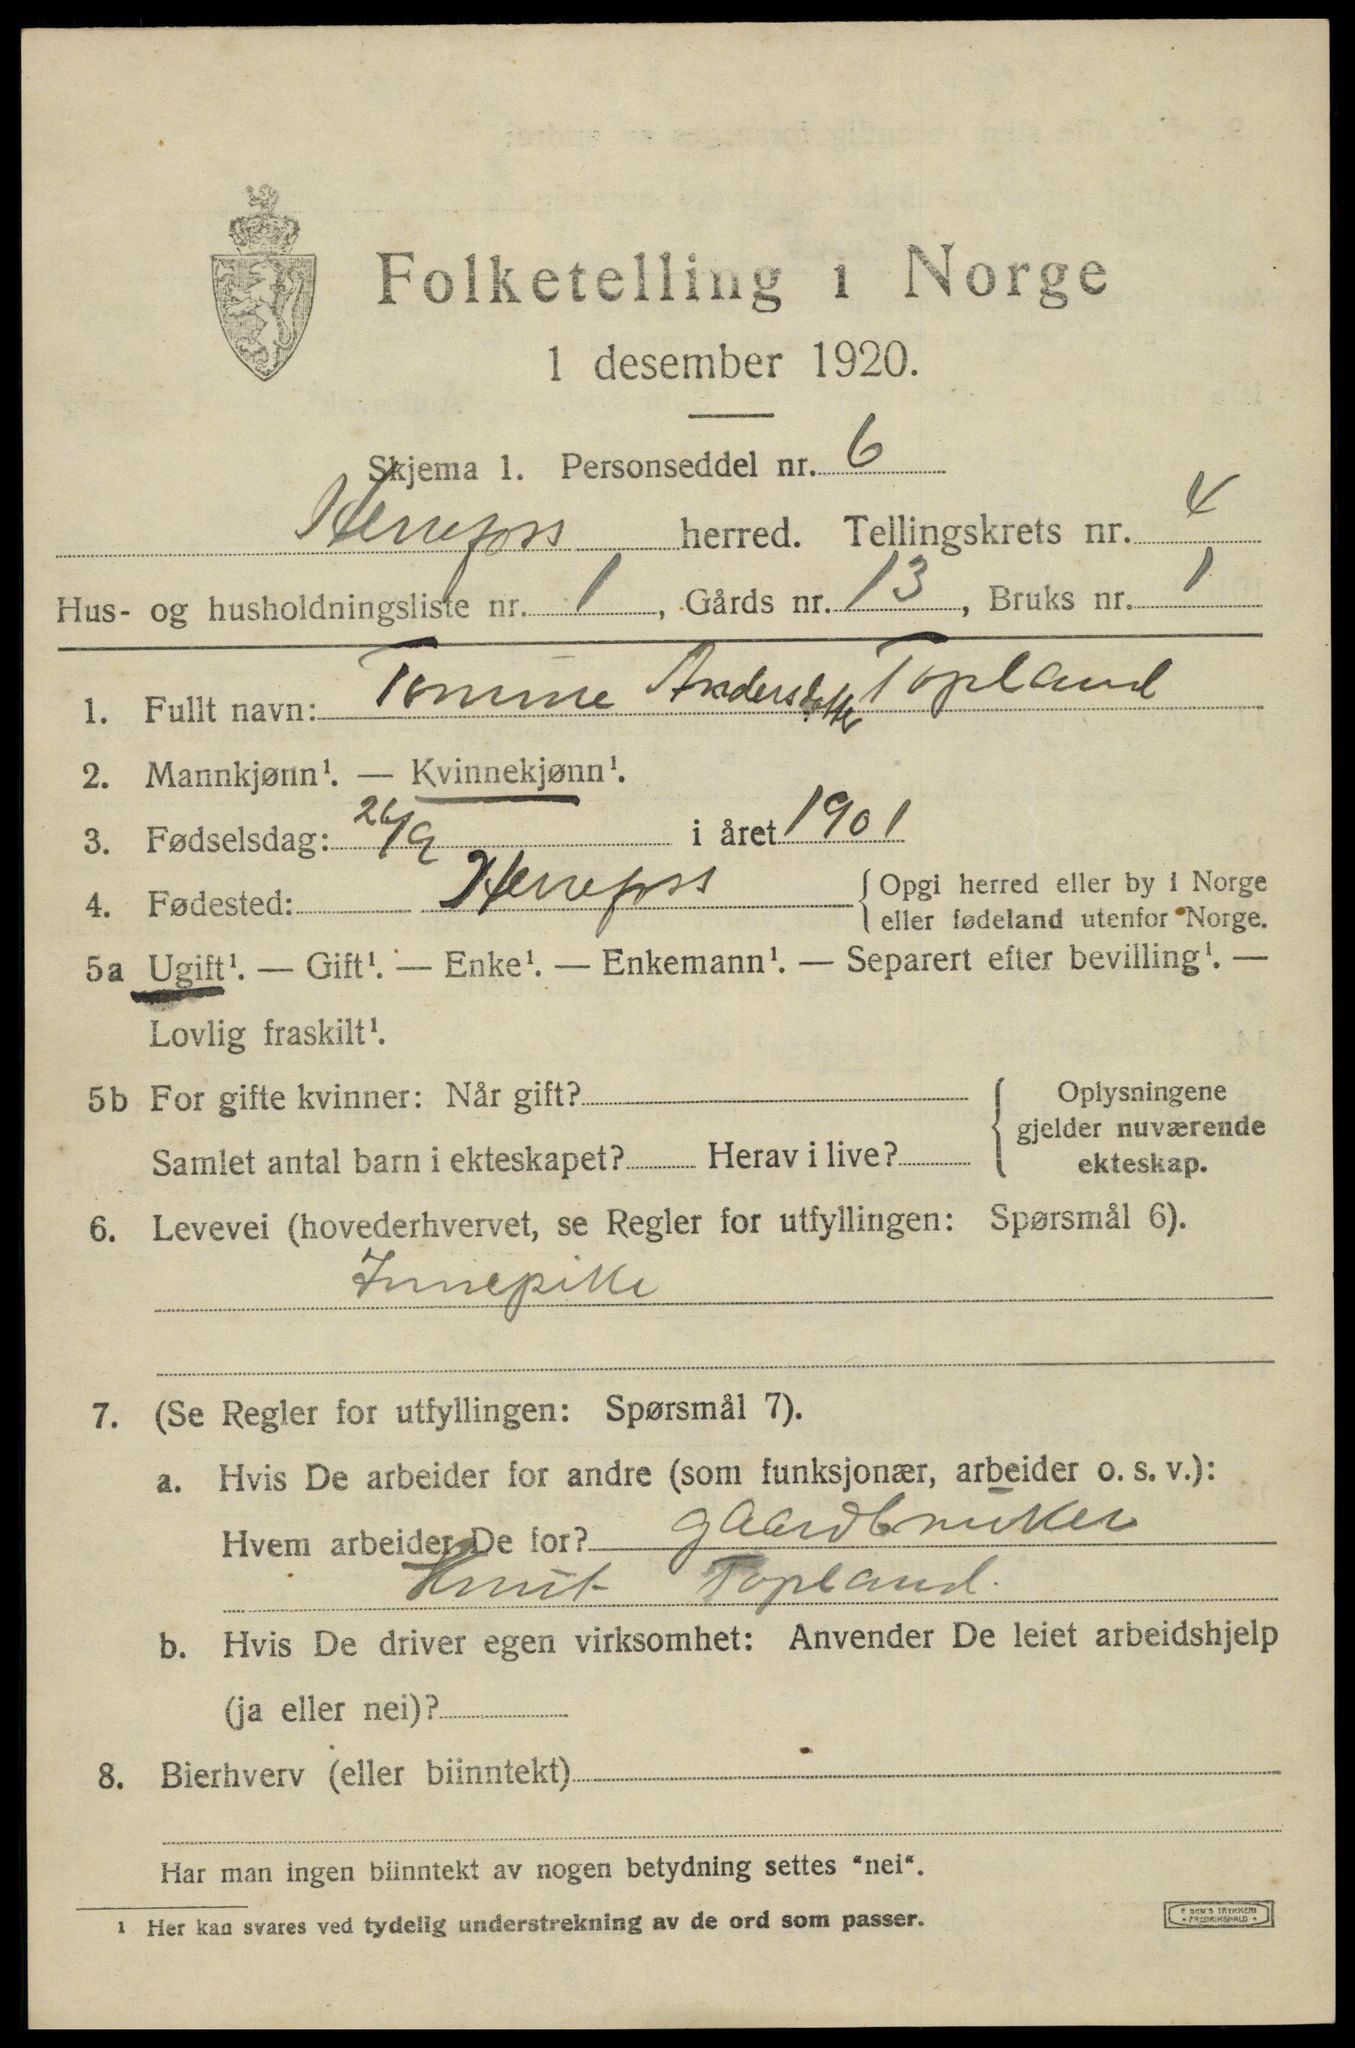 Folketelling i Norge
1 desember 1920.
Skjema 1. Personseddel nr. 6
Herrefoss herred. Tellingskrets nr. 4
Hus- og husholdningsliste nr. 1, Gårds nr. 13, Bruks nr. 1
1. Fullt navn: Tomine Andersdatter Topland
2. Mannkjønn¹. — Kvinnekjønn¹.
3. Fødselsdag: 26/9 i året 1901
4. Fødested: Herrefoss {Opgi herred eller by i Norge
eller fødeland utenfor Norge.
5a Ugift¹. — Gift¹. — Enke¹. — Enkemann¹. — Separert efter bevilling¹. —
Lovlig fraskilt¹.
5b For gifte kvinner: Når gift? { Oplysningene
gjelder nuværende
Samlet antal barn i ekteskapet? Herav i live? ekteskap.
6. Levevei (hovederhvervet, se Regler for utfyllingen: Spørsmål 6).
Innepike
7. (Se Regler for utfyllingen: Spørsmål 7).
a. Hvis De arbeider for andre (som funksjonær, arbeider o. s. v.):
Hvem arbeider De for? gaardbruker
Knut Topland.
b. Hvis De driver egen virksomhet: Anvender De leiet arbeidshjelp
(ja eller nei)?
8. Bierhverv (eller biinntekt)
Har man ingen biinntekt av nogen betydning settes "nei".
1 Her kan svares ved tydelig understrekning av de ord som passer.
E SEM'S TRYKKERI
FREDRIKSHALD